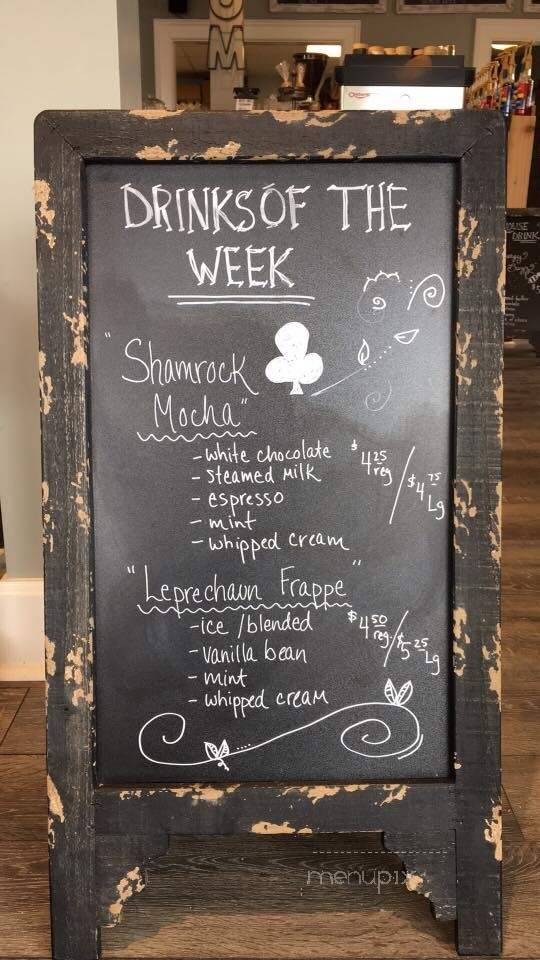 OM
DRINKS OF THE
WEEK
"Shamrock
Mocha"
- white chocolate $4.25 reg / $4.75 Lg
- steamed milk
- espresso
- mint
- whipped cream
"Leprechaun Frappe"
- ice / blended $4.50 reg / $5.25 Lg
- vanilla bean
- mint
- whipped cream
menupix
DRINK